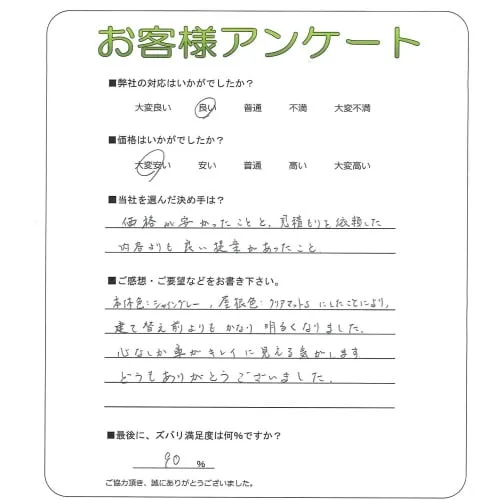 お客様アンケート
■弊社の対応はいかがでしたか？
大変良い 良い 普通 不満 大変不満
■価格はいかがでしたか？
大変安い 安い 普通 高い 大変高い
■当社を選んだ決め手は？
価格が安かったことと、見積もりを依頼した
内容よりも良い提案があったこと
■ご感想・ご要望などをお書き下さい。
本体色:シャイングレー，屋根色:クリアマットSにしたことにより、
建て替え前よりもかなり明るくなりました。
心なしか車がキレイに見える気がします
どうもありがとうございました。
■最後に、ズバリ満足度は何%ですか？
90 %
ご協力頂き、誠にありがとうございました。